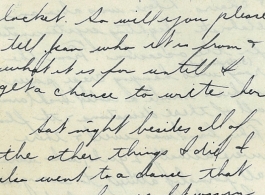 locket. So will you please
tell Jean who it is from &
what it is for untill I
get a chance to write her
Sat night besides all of
the other things I did I
also went to a dance that